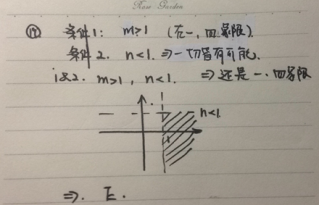 Rose Garden
⑲ 条件1: m≥1 (在一, 四象限)
条件2. n<1. ⇒一切皆有可能.
1&2. m>1, n<1. ⇒ 还是一.四象限
n<1.
1
⇒. E.